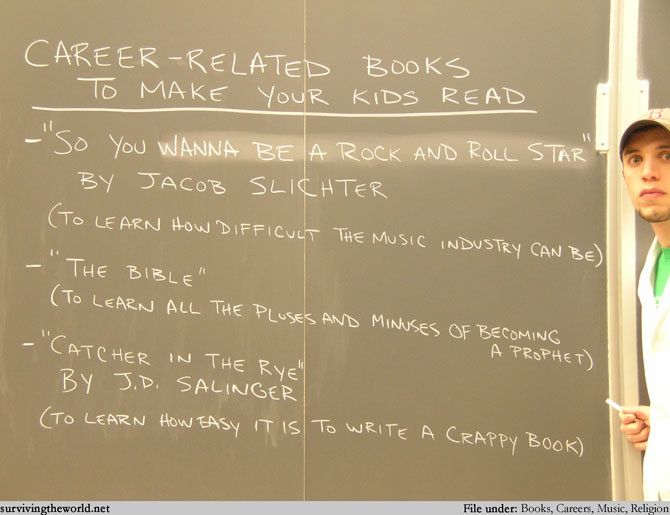 CAREER-RELATED BOOKS
TO MAKE YOUR KIDS READ
- "SO YOU WANNA BE A ROCK AND ROLL STAR"
BY JACOB SLICHTER
(TO LEARN HOW DIFFICULT THE MUSIC INDUSTRY CAN BE)
- "THE BIBLE"
(TO LEARN ALL THE PLUSES AND MINUSES OF BECOMING
A PROPHET)
- "CATCHER IN THE RYE"
BY J.D. SALINGER
(TO LEARN HOW EASY IT IS TO WRITE A CRAPPY BOOK)
survivingtheworld.net
File under: Books, Careers, Music, Religion